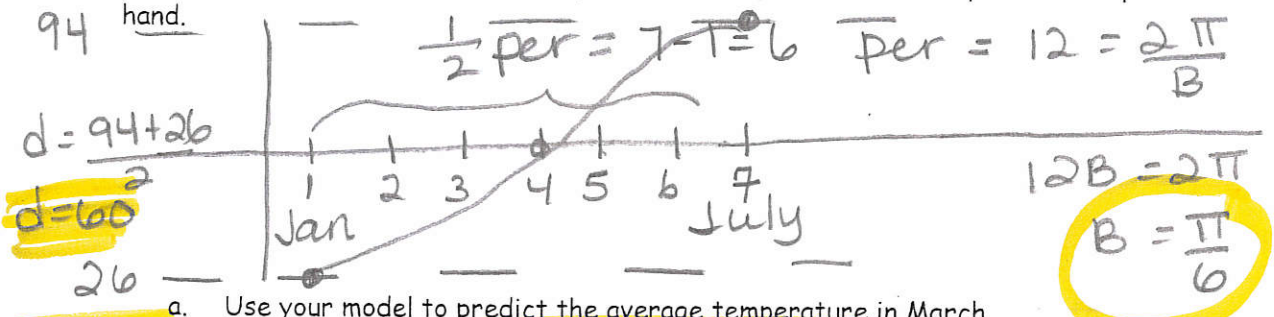 94 hand.
1/2 per = 7-1=6
per = 12 = 2π/B
d = 94+26/2
1 2 3 4 5 6 7
12B = 2π
d=60
Jan July
B = π/6
26
a. Use your model to predict the average temperature in March